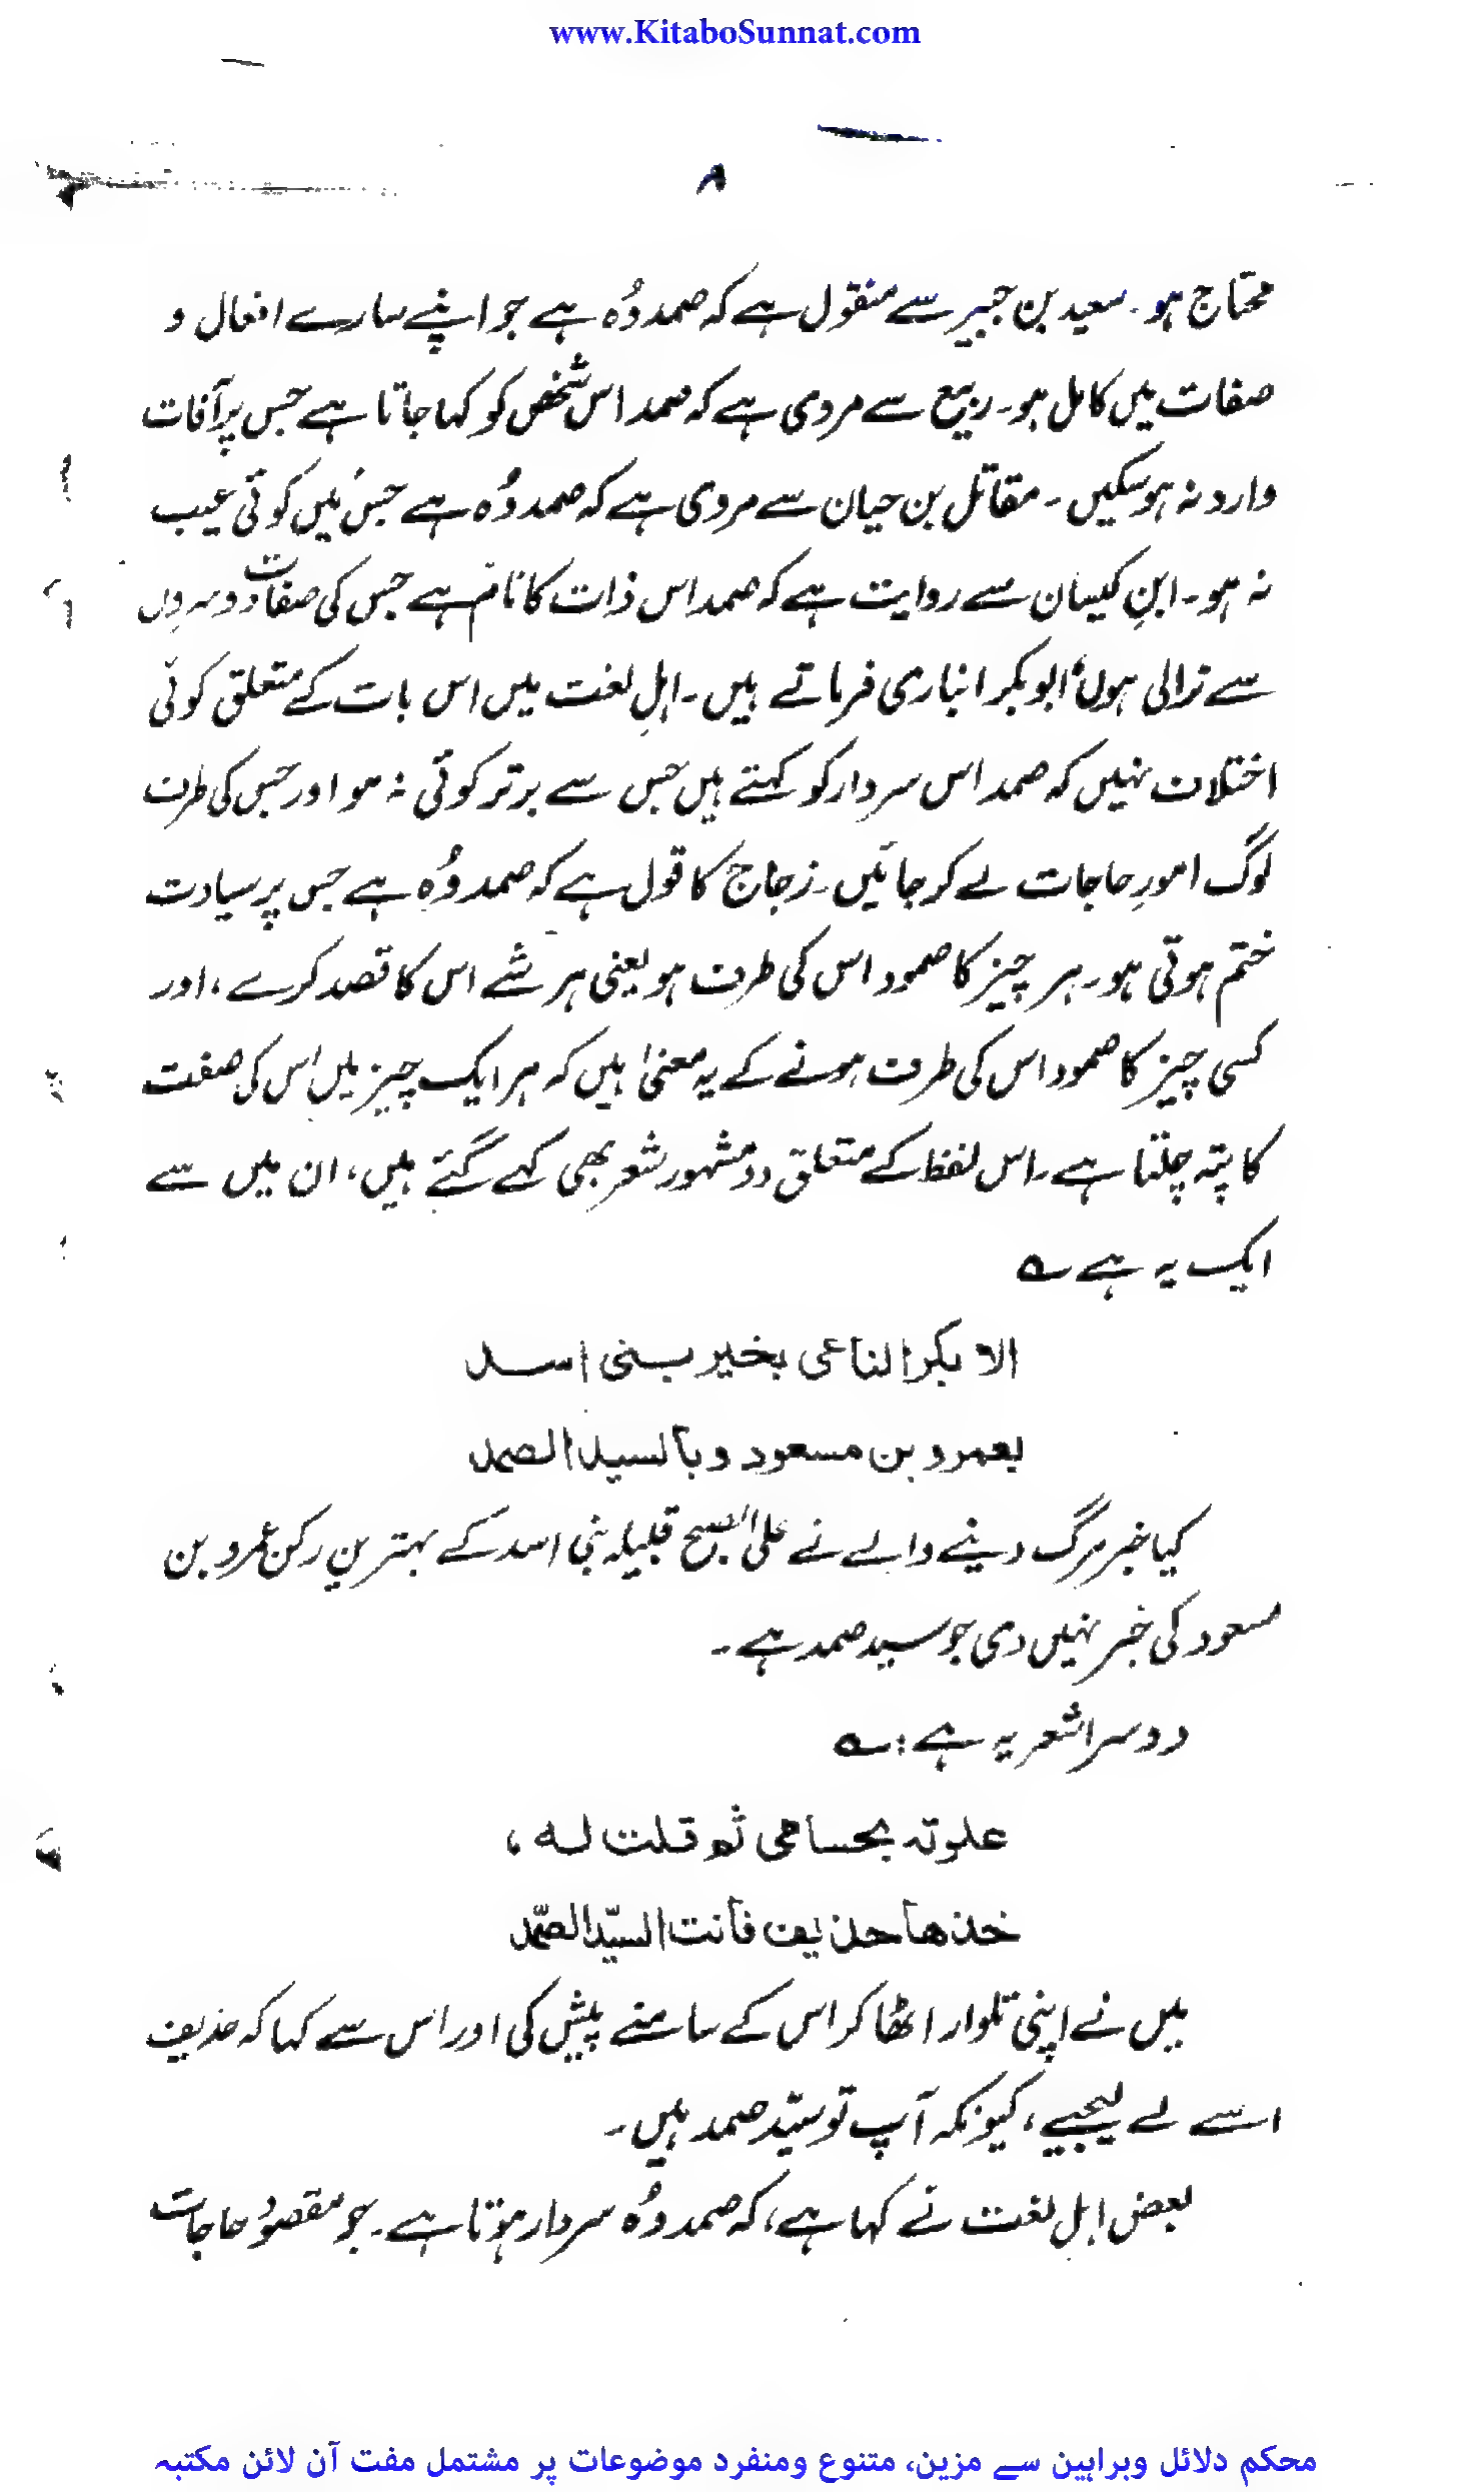 www.KitaboSunnat.com
۸
محتاج ہو۔ سعید بن جبیر سے منقول ہے کہ صمد وُہ ہے جو اپنے سارے افعال و
صفات میں کامل ہو۔ ربیع سے مروی ہے کہ صمد اس شخص کو کہا جاتا ہے جس پر آفات
وارد نہ ہوسکیں۔ مقاتل بن حیان سے مروی ہے کہ صمد وُہ ہے جس میں کوئی عیب
نہ ہو۔ ابنِ کیسان سے روایت ہے کہ صمد اس ذات کا نام ہے جس کی صفات دوسروں
سے نرالی ہوں، ابوبکر انباری فرماتے ہیں۔ اہلِ لغت میں اس بات کے متعلق کوئی
اختلاف نہیں کہ صمد اس سردار کو کہتے ہیں جس سے برتر کوئی نہ ہو اور جس کی طرف
لوگ امورِ حاجات لے کر جائیں۔ زجاج کا قول ہے کہ صمد وُہ ہے جس پر سیادت
ختم ہوتی ہو۔ ہر چیز کا صمود اس کی طرف ہو یعنی ہر شے اس کا قصد کرے، اور
کسی چیز کا صمود اس کی طرف ہونے کے یہ معنیٰ ہیں کہ ہر ایک چیز میں اس کی صفت
کا پتہ چلتا ہے۔ اس لفظ کے متعلق دو مشہور شعر بھی کہے گئے ہیں، ان میں سے
ایک یہ ہے ؎
الا بکر الناعی بخیر بنی اسد
بعمرو بن مسعود و بالسید الصمد
کیا خبر مرگ دینے والے نے علی الصبح قبیلہ بنی اسد کے بہترین رکن عمرو بن
مسعود کی خبر نہیں دی جو سید صمد ہے۔
دوسرا شعر یہ ہے: ؎
علوتہ بحسامی ثم قلت لہ،
خذھا حذیف فانت السیّد الصّمد
میں نے اپنی تلوار اٹھا کر اس کے سامنے پیش کی اور اس سے کہا کہ حذیف
اسے لے لیجیے، کیونکہ آپ تو سیّد صمد ہیں۔
بعض اہلِ لغت نے کہا ہے، کہ صمد وُہ سردار ہوتا ہے۔ جو مقصودِ حاجات
محکم دلائل وبراہین سے مزین، متنوع ومنفرد موضوعات پر مشتمل مفت آن لائن مکتبہ